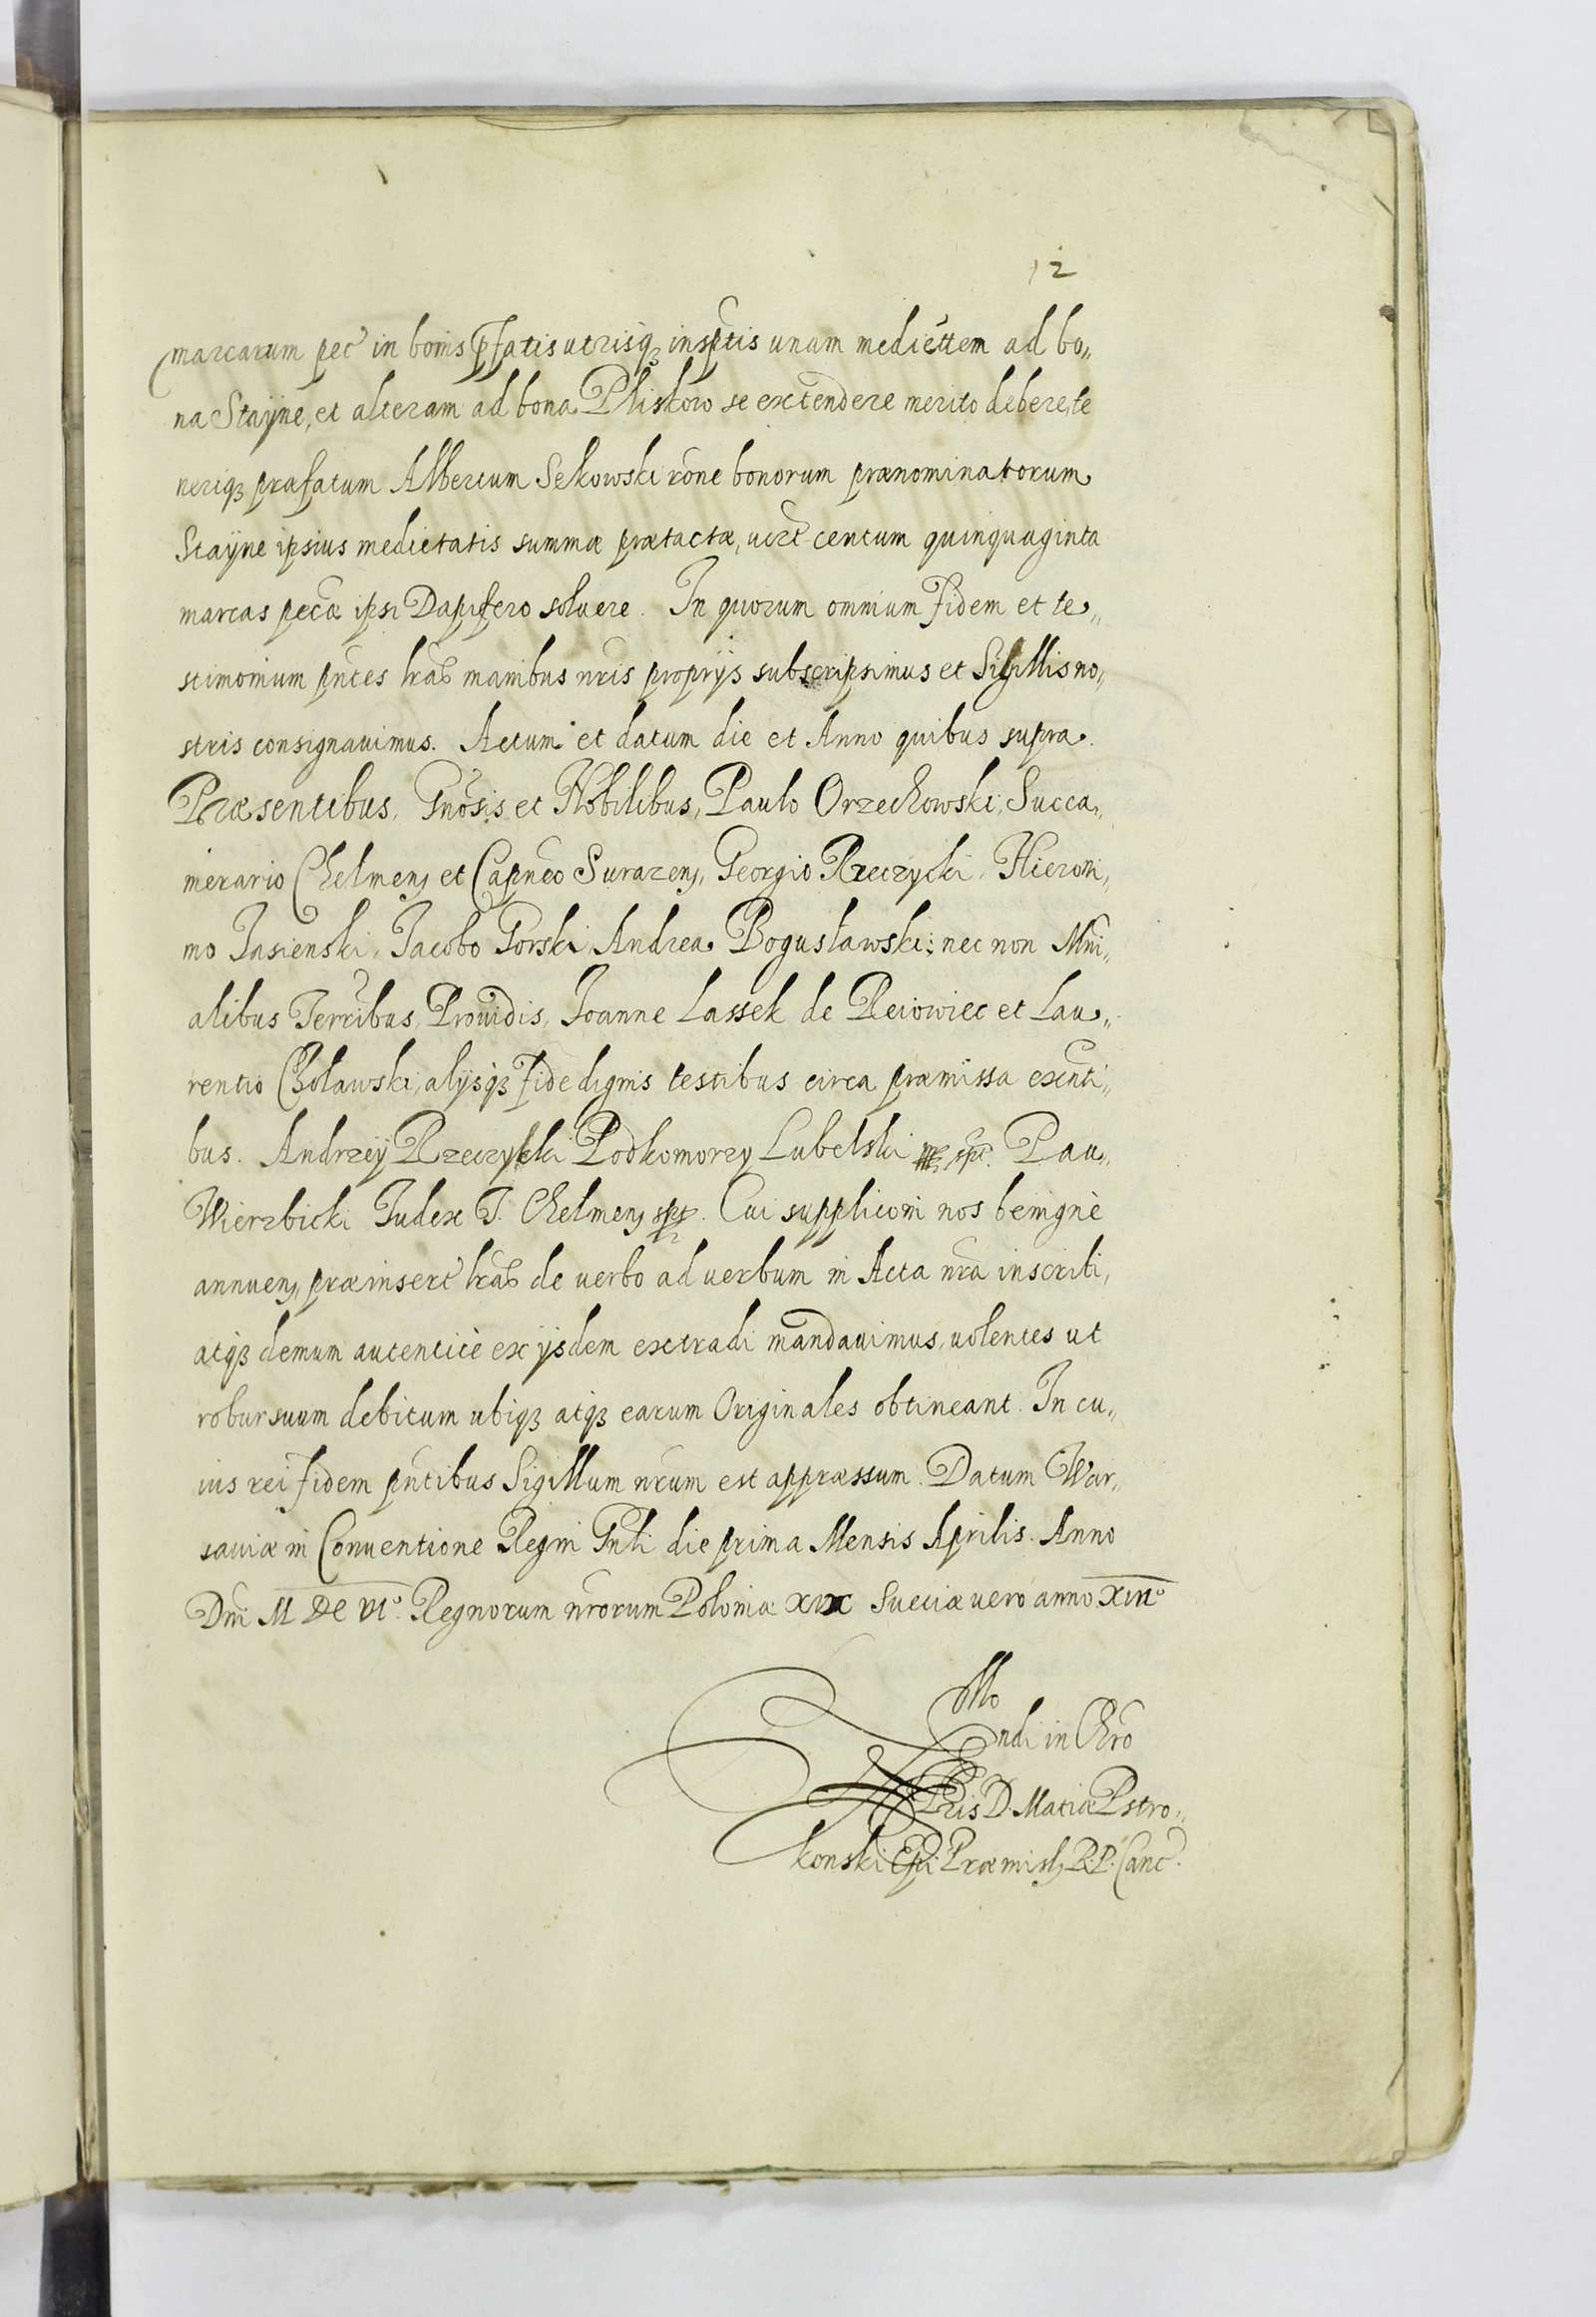 12
marcarum pec in bonis pfatis utrisq; insptis unam mediettem ad bo„
na Stayne, et alteram ad bona Pliskow se extendere merito debere, te
neriq; præfatum Albertum Sekowski rone bonorum prænominatorum
Stayne ipsius medietatis summæ prætactæ, uczt centum quinquaginta
marcas pecæ ipsi Dapifero soluere. In quorum omnium fidem et te„
stimonium pntes lras manibus nris proprijs subscripsimus et Sigillis no„
stris consignauimus. Actum et datum die et Anno quibus supra.
Præsentibus, Gnosis et Nobilibus, Paulo Orzechowski, Succa„
merario Chelmen, et Capneo Surazen, Georgio Rzeczycki, Hieroni„
mo Jasienski, Jacobo Gorski, Andrea Bogusławski; nec non Mni„
alibus Terribus, Prouidis, Joanne Lassek de Reiowiec et Lau„
rentio Cholawski, alijsq; fide dignis testibus circa præmissa exnti„
bus. Andrzey Rzeczycki Podkomorzy Lubelski spt. Pau„
Wierzbicki Judex T. Chelmen, spt. Cui suppliconi nos benignè
annuen, præinsert lras de uerbo ad uerbum in Acta nra inscribi,
atq; demum autenticè ex ijsdem extradi mandauimus, uolentes ut
robur suum debitum ubiq; atq; earum Originales obtineant. In cu„
ius rei fidem pntibus Sigillum nrum est appræssum. Datum War„
sauiæ in Conuentione Regni Gnli die prima Mensis Aprilis. Anno
Dni M DC VI°. Regnorum nrorum Poloniæ XIX Sueciæ uero anno XIII°
Rndi in Chro
Pris D. Matiæ Pstro„
konski Epi Præmisl, R. P. Canc.